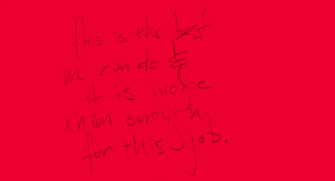 this is the best
we can do &
it is more
than enough
for this job.